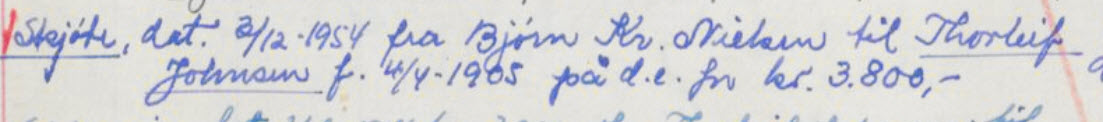 Skjøte, dat. 2/12-1954 fra Bjørn Kr. Nielsen til Thorleif
Johnsen f. 4/4-1905 på d.e. for kr. 3.800,-